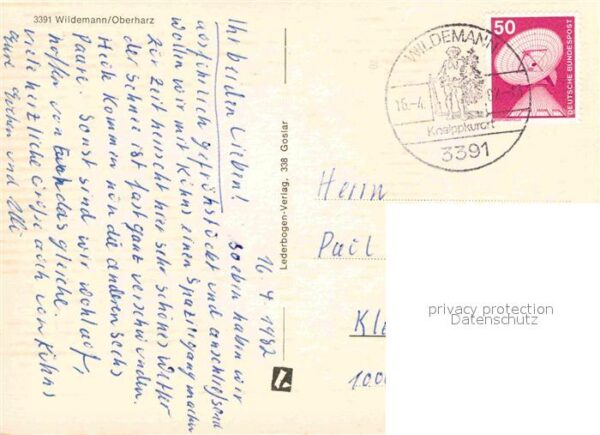 3391 Wildemann/Oberharz
16.4.1982
Ihr beiden Lieben! Soeben haben wir
ausführlich gefrühstückt und anschließend
wollen wir mit Kühns einen Spaziergang machen
Zur Zeit herrscht hier sehr schönes Wetter
der Schnee ist fast ganz verschwunden.
Hich kommen nun die anderen sechs
Paare. Sonst sind wir wohlauf,
hoffen von Euch das gleiche.
viele herzliche Grüße auch von Kühns
Eure und Elli
Lederbogen-Verlag, 338 Goslar
WILDEMANN
16.-4.
Kneippkurort
3391
50
DEUTSCHE BUNDESPOST
Herrn
Paul
Kl
1000
privacy protection
Datenschutz